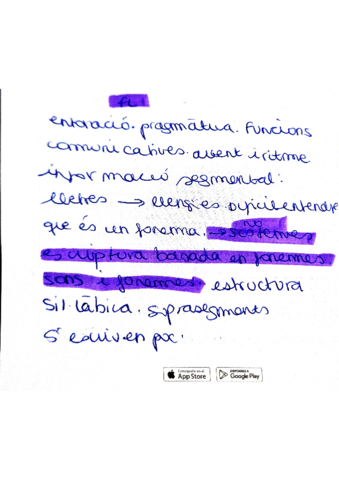 entonació. pragmàtica. Funcions
comunicatives. accent i ritme
informació segmental:
lletres → llengües difícil entendre
no
que és un fonema. → sistemes
escriptura basada en fonemes
sons i fonemes. estructura
sil·làbica. suprasegments
S'escriven
Consíguelo en el
App Store
DISPONIBLE EN
Google Play